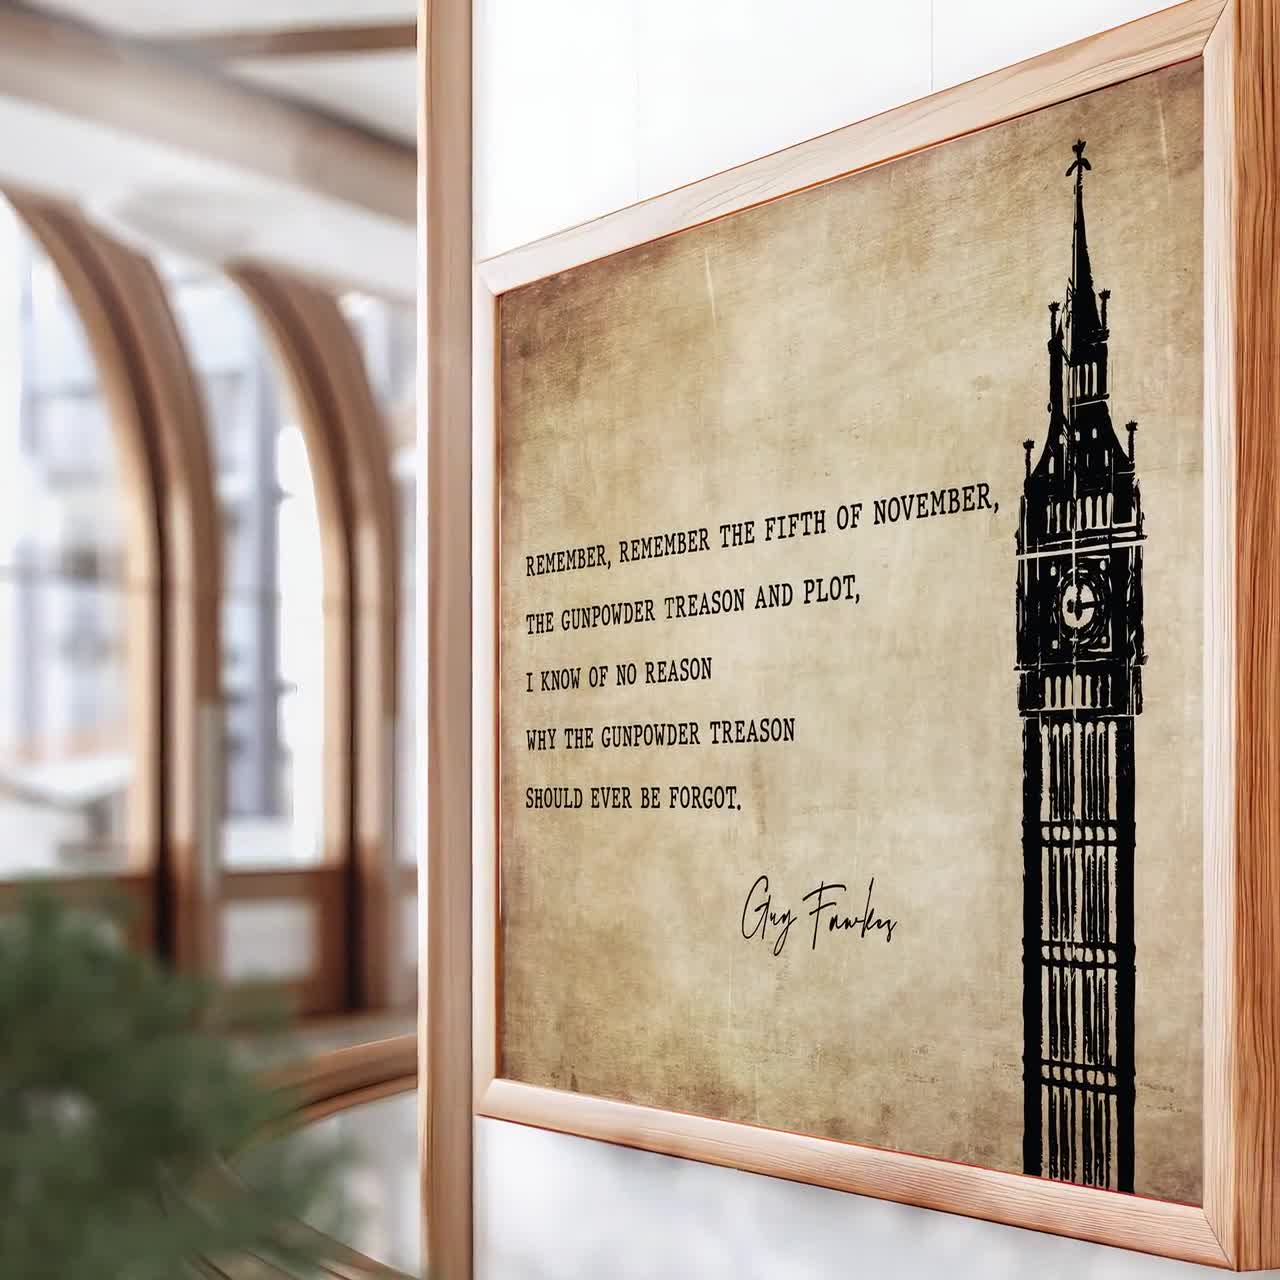 REMEMBER, REMEMBER THE FIFTH OF NOVEMBER,
THE GUNPOWDER TREASON AND PLOT,
I KNOW OF NO REASON
WHY THE GUNPOWDER TREASON
SHOULD EVER BE FORGOT.
Guy Fawkes